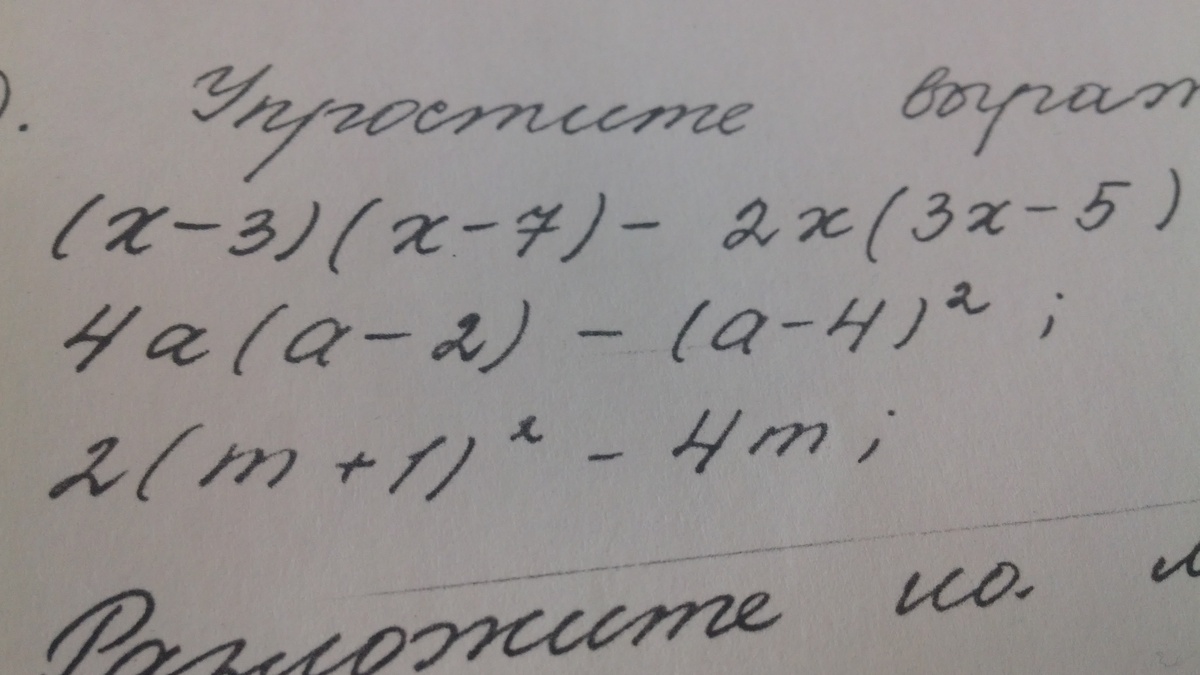 ). Упростите выраж
(x-3)(x-7) - 2x(3x-5)
4a(a-2) - (a-4)² ;
2(m+1)² - 4m ;
Разложите на